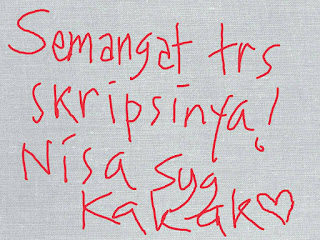 Semangat trs
skripsinya!
Nisa syg
Kakak♡